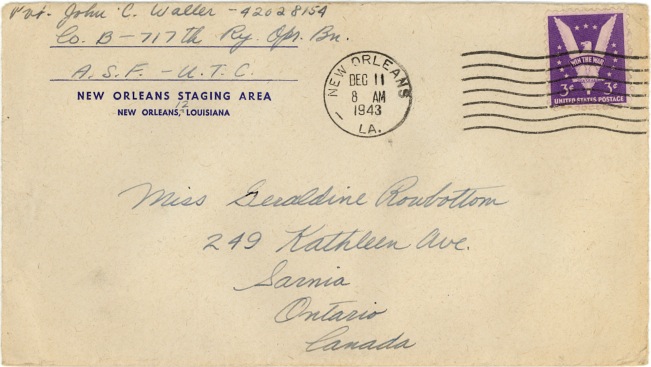 Pvt. John C. Waller - 42028154
Co. B - 717th Ry. Opr. Bn.
A.S.F. - U.T.C.
NEW ORLEANS STAGING AREA
12
NEW ORLEANS, LOUISIANA
NEW ORLEANS
DEC 11
8 AM
1943
LA.
WIN THE WAR
3¢ 3¢
UNITED STATES POSTAGE
Miss Geraldine Rowbottom
249 Kathleen Ave.
Sarnia
Ontario
Canada